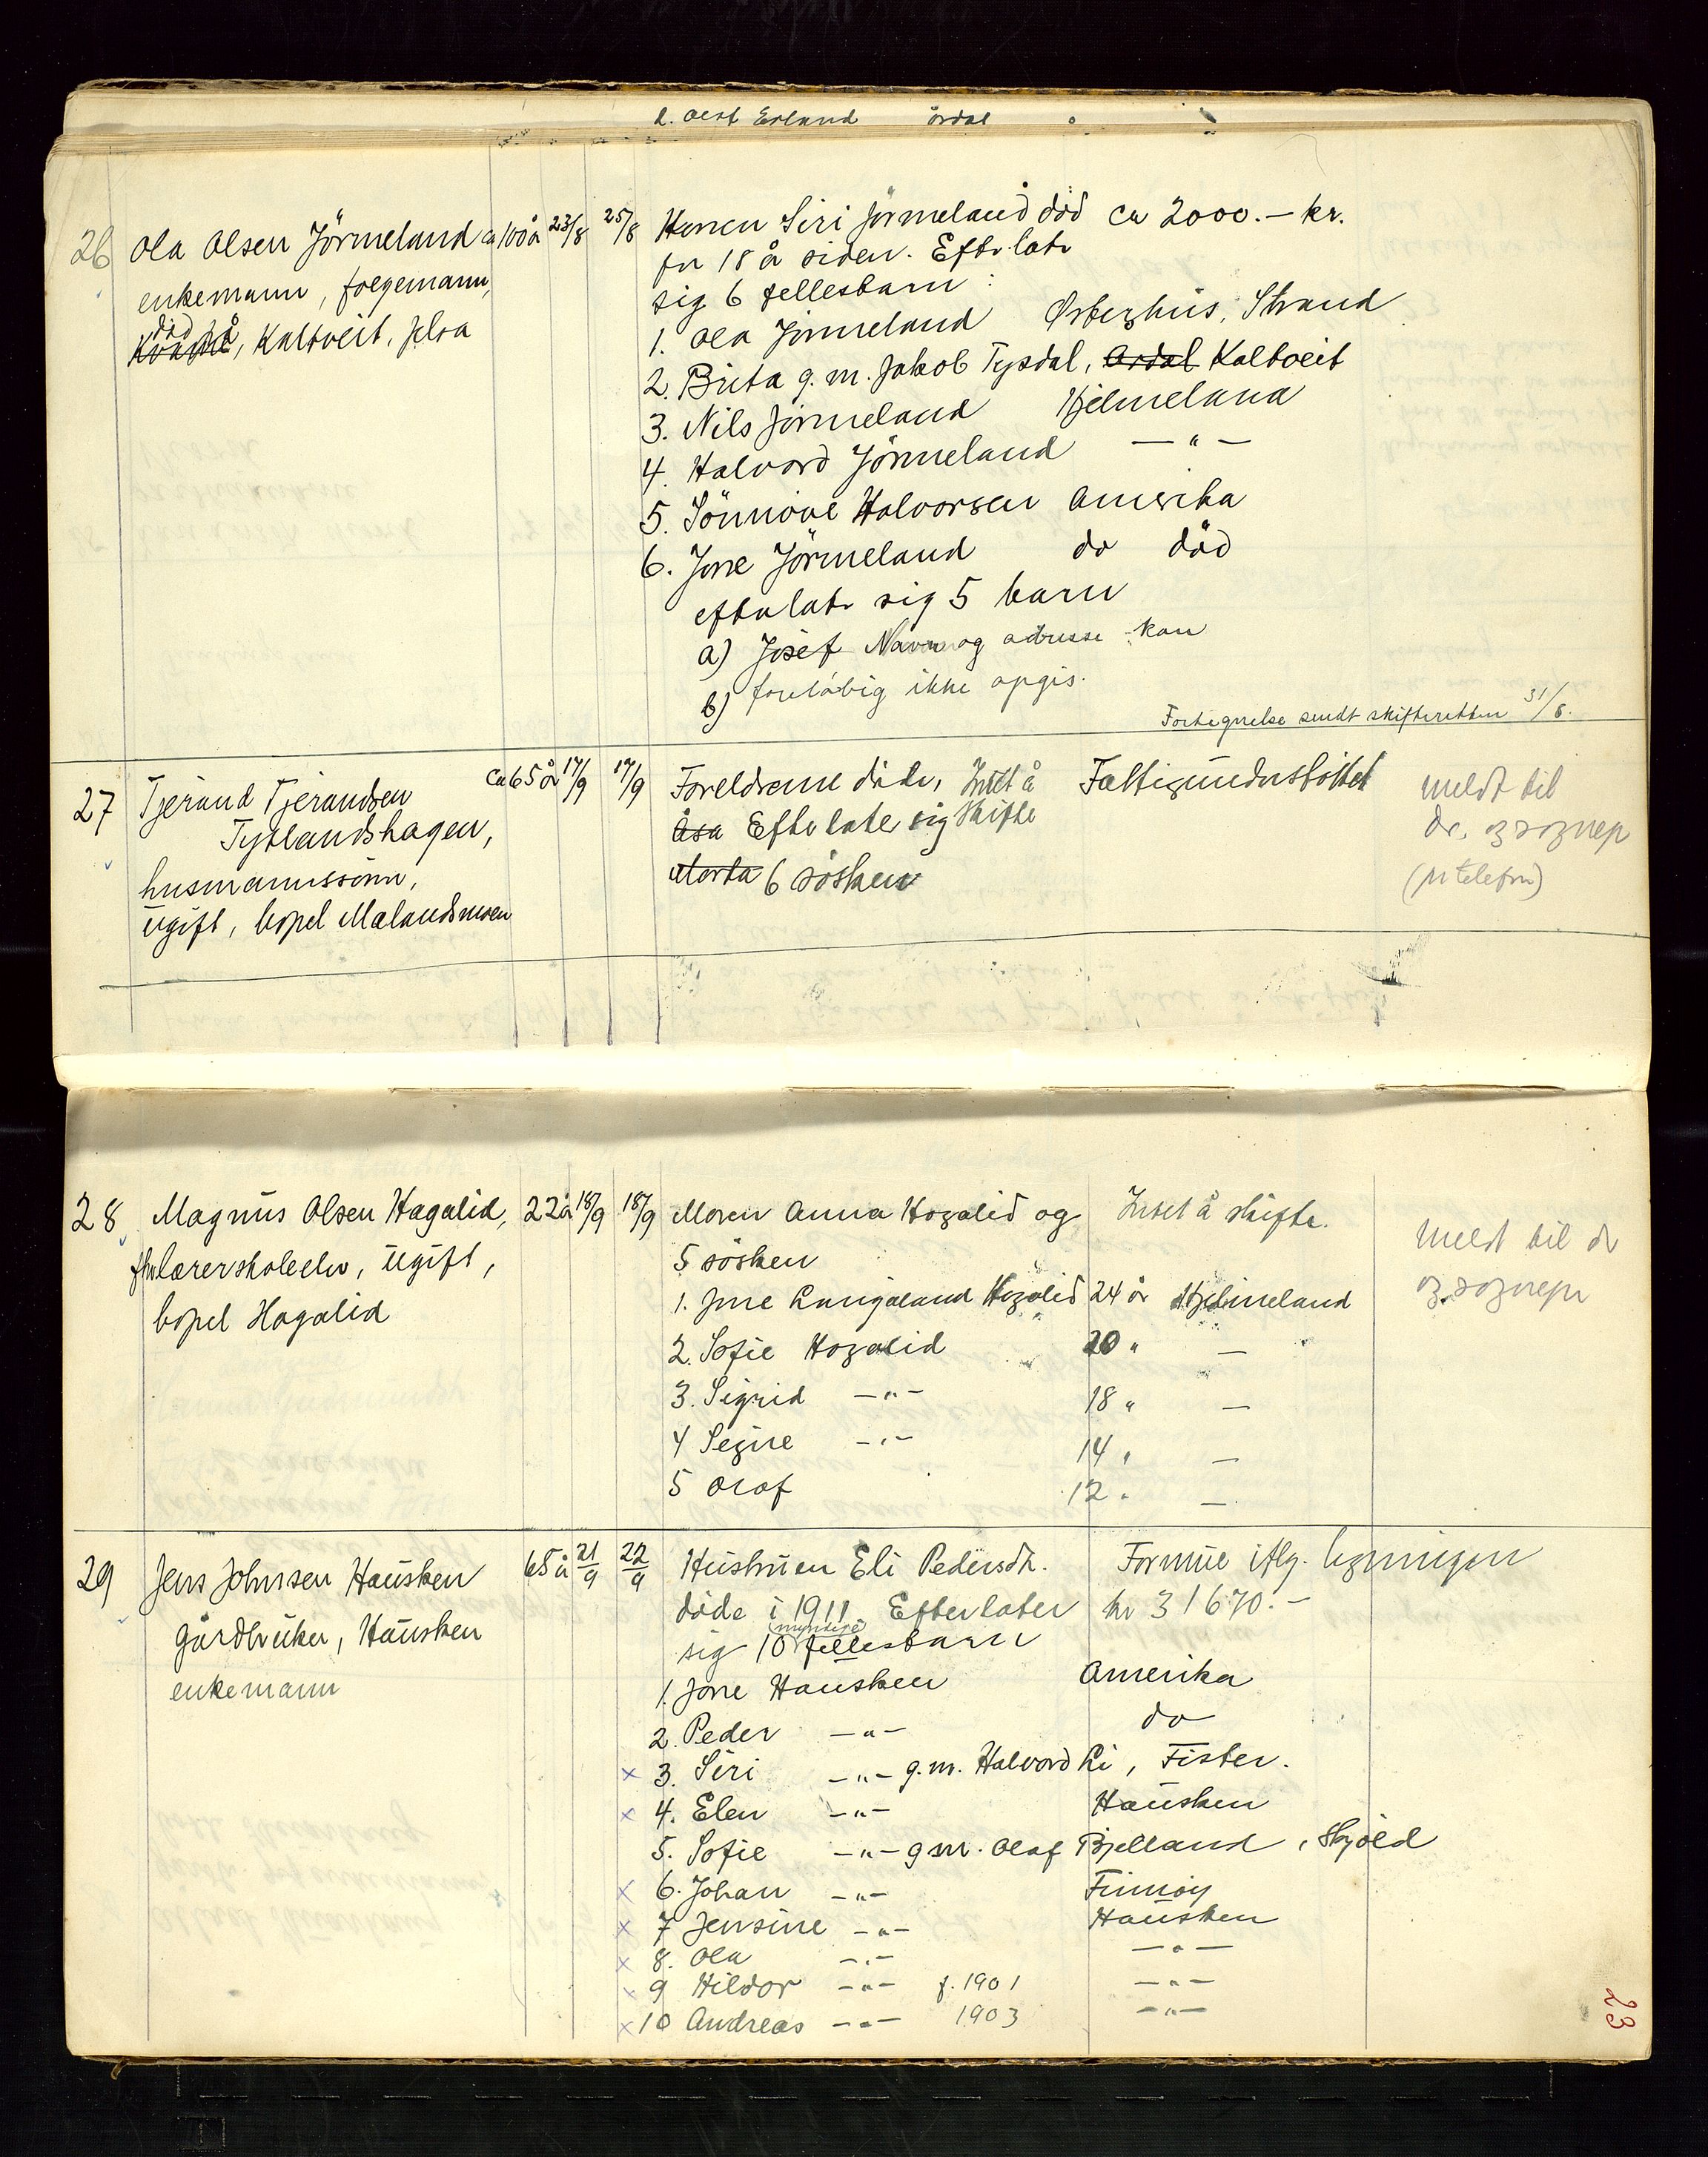 d. Olst Erland ördal
26 Ola Olsen Jörmeland ca 100 år 23/8 25/8 Konen Siri Jörmeland död ca 2000.- kr.
enkemann, foegemann, for 18 å siden. Efterlater
död på sig 6 fellesbarn :
Kvame, Kaltveit, Jelsa 1. Ola Jörmeland Østerhus, Strand
2. Brita g. m. Jakob Tysdal, Årdal Kaltveit
3. Nils Jörmeland Hjelmeland
4. Halvord Jörmeland —"—
5. Sönnöve Halvorsen Amerika
6. Jone Jörmeland do död
efterlater sig 5 barn
a) Josef Navn og adresse kan
b) foreløbig ikke opgis.
Fortegnelse sendt skifteretten 31/8.
27 Tjerand Tjerandsen ca 65 år 17/9 17/9 Foreldrene døde, Intet å Fattigunderstöttet meldt til
Tytlandshagen, Åsa Efterlater sig skifte dr. og sognep
husmannssönn, Marta 6 sösken (pr telefon)
ugift, bopel Mælandsmoen
28 Magnus Olsen Hagalid, 22 å 18/9 18/9 Moren Anna Hagalid og Intet å skifte. meldt til dr
fhv lærerskoleelev, ugift, 5 sösken og sognepr
bopel Hagalid 1. Jone Hagalid 24 år Hjelmeland
2. Sofie Hagalid 20 " —
3. Sigrid —"— 18 " —
4 Segne —"— 14 " —
5 Olaf 12 " —
29 Jens Johnsen Hausken 65 å 21/9 22/9 Hustruen Eli Pedersdtr. Formue iflg. ligningen
gårdbruker, Hausken döde i 1911. Efterlater kr 31670.-
enkemann sig 10 (myndige) fellesbarn
1. Jone Hausken Amerika
2. Peder —"— do
x 3. Siri —"— g.m. Halvord Li, Fister.
x 4. Elen —"— Hausken
5. Sofie —"— g m. Olaf Bjelland, Skjold
x 6. Johan —"— Finnöy
x 7 Jensine —"— Hausken
x 8. Ola —"— —"—
x 9 Hildor —"— f. 1901 —"—
x 10 Andreas —"— 1903 —"—
23